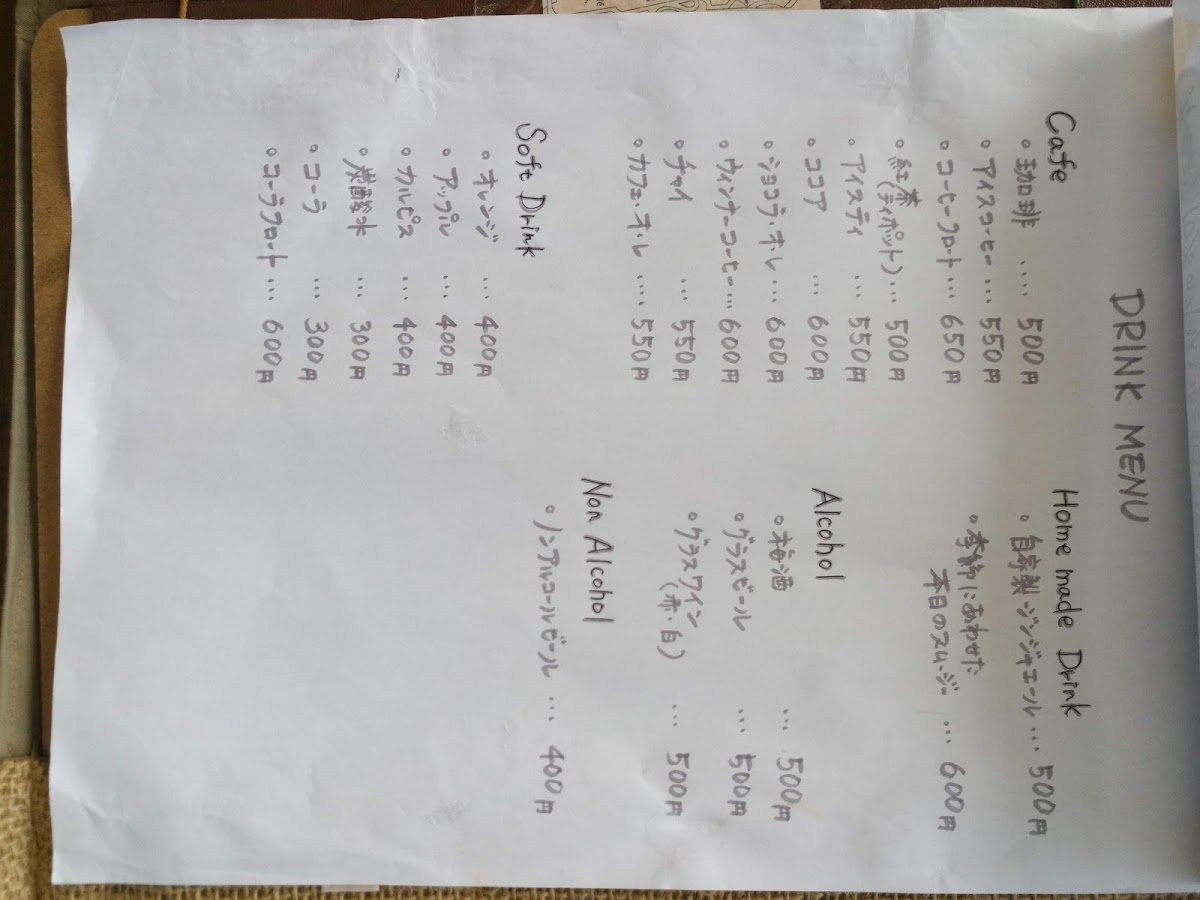 DRINK MENU
Cafe
。珈琲 .... 500円
。アイスコーヒー ... 550円
。コーヒーフロート ... 650円
。紅茶 ... 500円
(ティポット)
。アイスティ ... 550円
。ココア ... 600円
。ショコラ・オ・レ ... 600円
。ウィンナーコーヒー ... 600円
。チャイ ... 550円
。カフェ・オ・レ .... 550円
Soft Drink
。オレンジ ... 400円
。アップル ... 400円
。カルピス ... 400円
。炭酸水 ... 300円
。コーラ ... 300円
。コーラフロート ... 600円
Home made Drink
。自家製ジンジャエール ... 500円
。季節にあわせた
本日のスムージー ... 600円
Alcohol
。梅酒 ... 500円
。グラスビール ... 500円
。グラスワイン ... 500円
(赤・白)
Non Alcohol
。ノンアルコールビール ... 400円